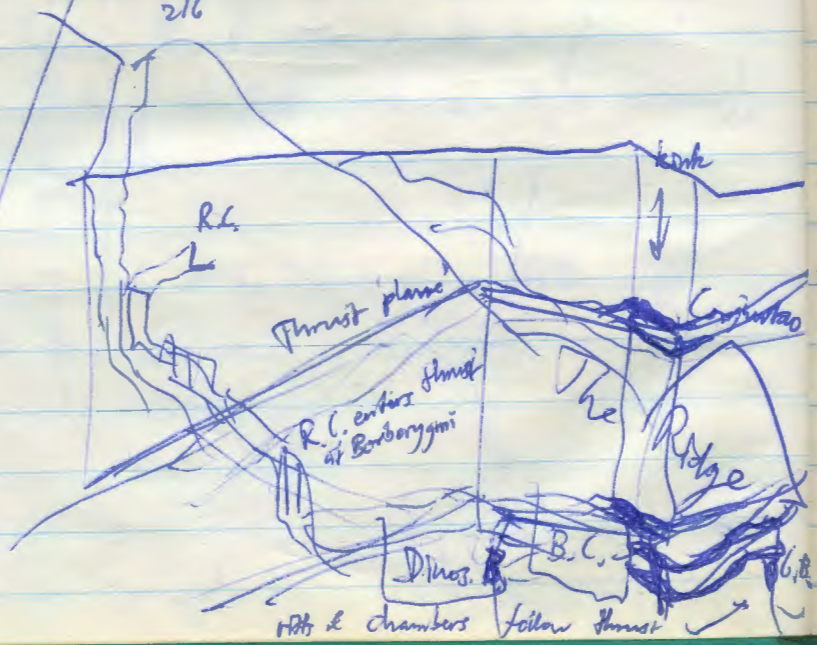 2/6
kink
R.C.
Thrust 'plane'
R.C. enters thrust
at Borborygmi
The Ridge
Dinos. R.
B.C.
& chambers follow thrust